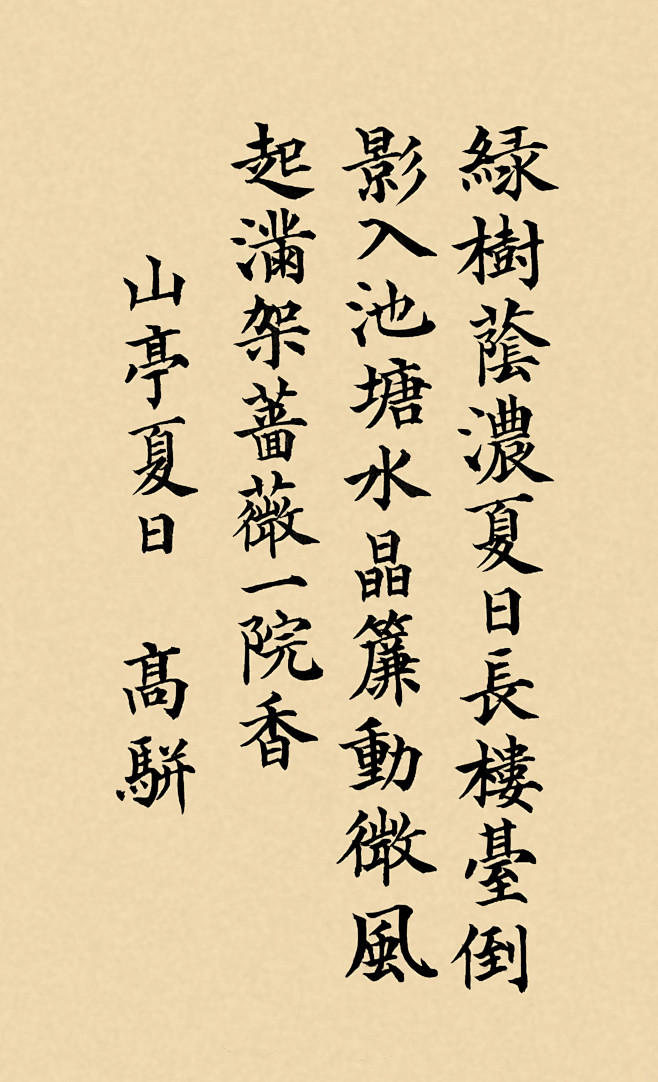 緑樹蔭濃夏日長樓臺倒
影入池塘水晶簾動微風
起滿架薔薇一院香
山亭夏日 高駢